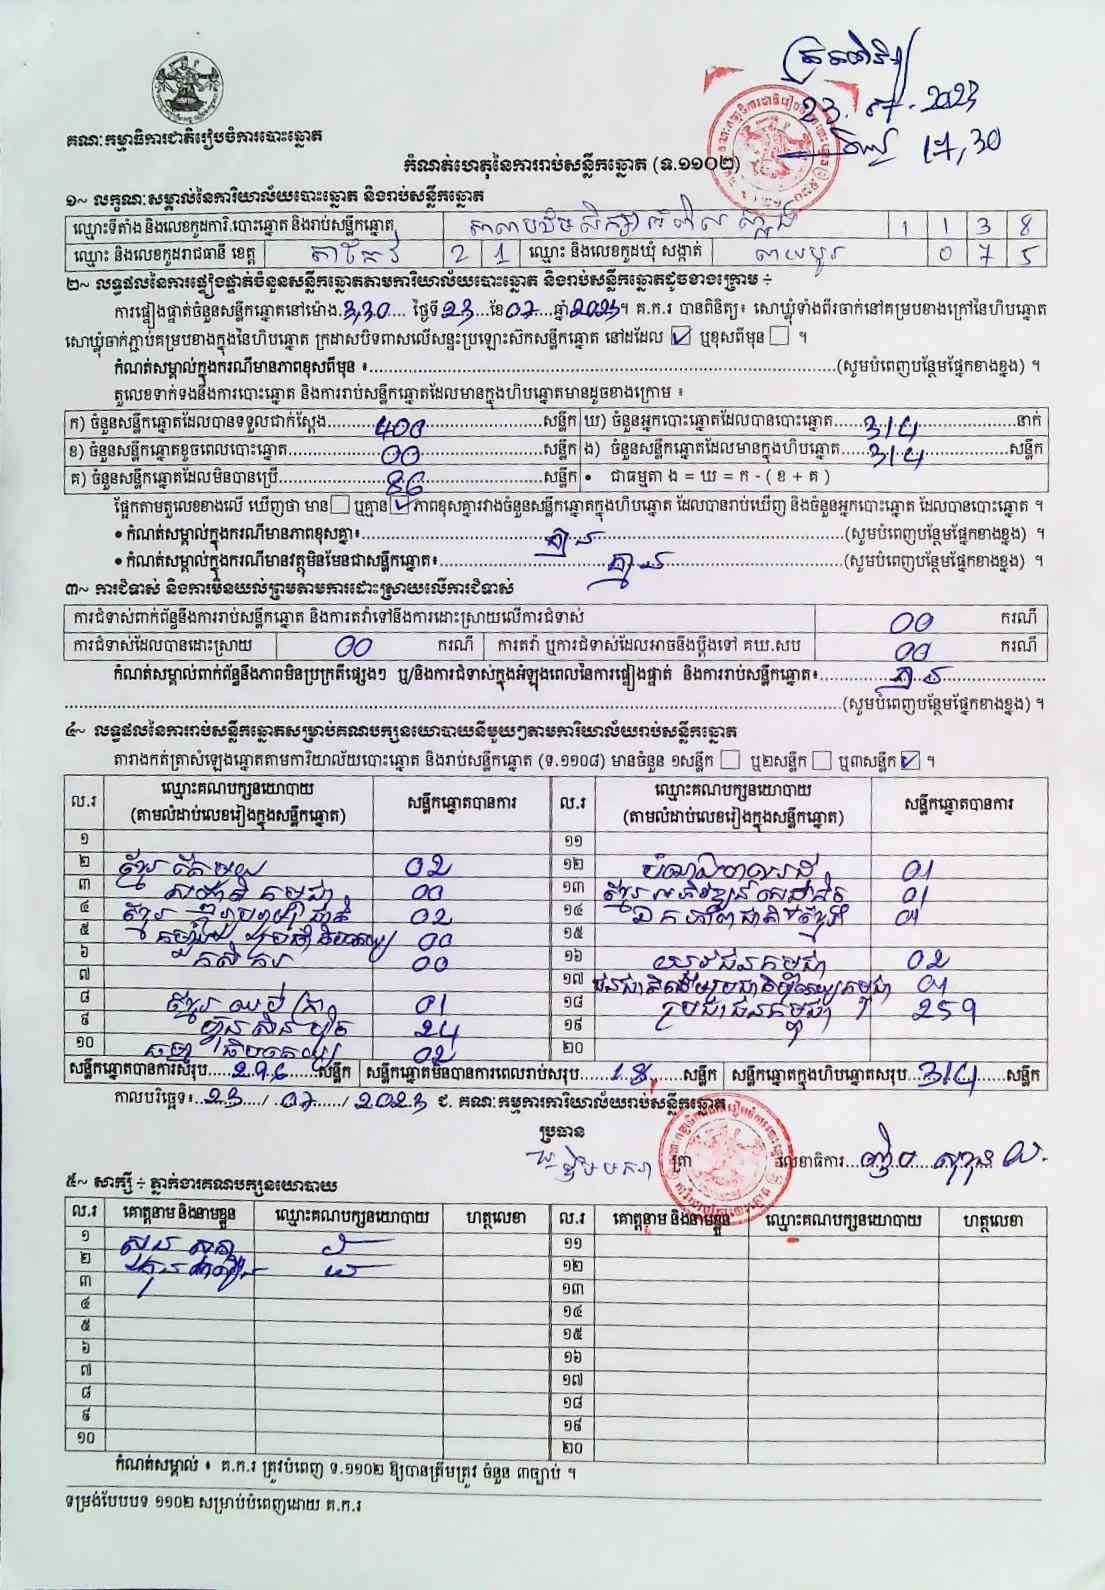 23.07.2023
17,30
គណៈកម្មាធិការជាតិរៀបចំការបោះឆ្នោត
កំណត់ហេតុនៃការរាប់សន្លឹកឆ្នោត (ទ.១១០២)
១~ លក្ខណៈសម្គាល់នៃការិយាល័យបោះឆ្នោត និងរាប់សន្លឹកឆ្នោត
ឈ្មោះទីតាំង និងលេខកូដការិ.បោះឆ្នោត និងរាប់សន្លឹកឆ្នោត 1 1 3 8
ឈ្មោះ និងលេខកូដរាជធានី ខេត្ត តាកែវ 2 1 ឈ្មោះ និងលេខកូដឃុំ សង្កាត់ 0 7 5
២~ លទ្ធផលនៃការផ្ទៀងផ្ទាត់ចំនួនសន្លឹកឆ្នោតតាមការិយាល័យបោះឆ្នោត និងរាប់សន្លឹកឆ្នោតដូចខាងក្រោម ÷
ការផ្ទៀងផ្ទាត់ចំនួនសន្លឹកឆ្នោតនៅម៉ោង 3,30 ថ្ងៃទី 23 ខែ 07 ឆ្នាំ 2023។ គ.ក.រ បានពិនិត្យ៖ សោឃ្លុំទាំងពីរចាក់នៅគម្របខាងក្រៅនៃហិបឆ្នោត
សោឃ្លុំចាក់ភ្ជាប់គម្របខាងក្នុងនៃហិបឆ្នោត ក្រដាសបិទពាសលើសន្ទះប្រឡោះស៊កសន្លឹកឆ្នោត នៅដដែល ☑ ឬខុសពីមុន ☐ ។
កំណត់សម្គាល់ក្នុងករណីមានភាពខុសពីមុន ៖ (សូមបំពេញបន្ថែមផ្នែកខាងខ្នង) ។
តួលេខទាក់ទងនឹងការបោះឆ្នោត និងការរាប់សន្លឹកឆ្នោតដែលមានក្នុងហិបឆ្នោតមានដូចខាងក្រោម ៖
ក) ចំនួនសន្លឹកឆ្នោតដែលបានទទួលជាក់ស្តែង 400 សន្លឹក ឃ) ចំនួនអ្នកបោះឆ្នោតដែលបានបោះឆ្នោត 314 នាក់
ខ) ចំនួនសន្លឹកឆ្នោតខូចពេលបោះឆ្នោត 00 សន្លឹក ង) ចំនួនសន្លឹកឆ្នោតដែលមានក្នុងហិបឆ្នោត 314 សន្លឹក
គ) ចំនួនសន្លឹកឆ្នោតដែលមិនបានប្រើ 86 សន្លឹក • ជាធម្មតា ង = ឃ = ក - ( ខ + គ )
ផ្អែកតាមតួលេខខាងលើ ឃើញថា មាន ☐ ឬគ្មាន ☑ ភាពខុសគ្នារវាងចំនួនសន្លឹកឆ្នោតក្នុងហិបឆ្នោត ដែលបានរាប់ឃើញ និងចំនួនអ្នកបោះឆ្នោត ដែលបានបោះឆ្នោត ។
• កំណត់សម្គាល់ក្នុងករណីមានភាពខុសគ្នា៖ គ្មាន (សូមបំពេញបន្ថែមផ្នែកខាងខ្នង) ។
• កំណត់សម្គាល់ក្នុងករណីមានវត្ថុមិនមែនជាសន្លឹកឆ្នោត៖ គ្មាន (សូមបំពេញបន្ថែមផ្នែកខាងខ្នង) ។
៣~ ការជំទាស់ និងការមិនយល់ព្រមតាមការដោះស្រាយលើការជំទាស់
ការជំទាស់ពាក់ព័ន្ធនឹងការរាប់សន្លឹកឆ្នោត និងការតវ៉ាទៅនឹងការដោះស្រាយលើការជំទាស់ 00 ករណី
ការជំទាស់ដែលបានដោះស្រាយ 00 ករណី ការតវ៉ា ឬការជំទាស់ដែលអាចនឹងប្តឹងទៅ គឃ.សប 00 ករណី
កំណត់សម្គាល់ពាក់ព័ន្ធនឹងភាពមិនប្រក្រតីផ្សេងៗ ឬ/និងការជំទាស់ក្នុងអំឡុងពេលនៃការផ្ទៀងផ្ទាត់ និងការរាប់សន្លឹកឆ្នោត៖ គ្មាន
(សូមបំពេញបន្ថែមផ្នែកខាងខ្នង) ។
៤~ លទ្ធផលនៃការរាប់សន្លឹកឆ្នោតសម្រាប់គណបក្សនយោបាយនីមួយៗតាមការិយាល័យរាប់សន្លឹកឆ្នោត
តារាងកត់ត្រាសំឡេងឆ្នោតតាមការិយាល័យបោះឆ្នោត និងរាប់សន្លឹកឆ្នោត (ទ.១១០៨) មានចំនួន ១សន្លឹក ☐ ឬ២សន្លឹក ☐ ឬ៣សន្លឹក ☑ ។
ល.រ ឈ្មោះគណបក្សនយោបាយ សន្លឹកឆ្នោតបានការ ល.រ ឈ្មោះគណបក្សនយោបាយ សន្លឹកឆ្នោតបានការ
(តាមលំដាប់លេខរៀងក្នុងសន្លឹកឆ្នោត) (តាមលំដាប់លេខរៀងក្នុងសន្លឹកឆ្នោត)
១ ១១
២ ខ្មែរតែមួយ 02 ១២ 01
៣ កម្ពុជា 00 ១៣ ខ្មែរអភិវឌ្ឍន៍សេដ្ឋកិច្ច 01
៤ ខ្មែរ ជាតិ 02 ១៤ ឯកភាពជាតិខ្មែរ 01
៥ 00 ១៥
៦ កសិករ 00 ១៦ យុវជនកម្ពុជា 02
៧ ១៧ 01
៨ ខ្មែរ 01 ១៨ ប្រជាជនកម្ពុជា 259
៩ ហ្វ៊ុនស៊ិនប៉ិច 24 ១៩
១០ 02 ២០
សន្លឹកឆ្នោតបានការសរុប 296 សន្លឹក សន្លឹកឆ្នោតមិនបានការពេលរាប់សរុប 18 សន្លឹក សន្លឹកឆ្នោតក្នុងហិបឆ្នោតសរុប 314 សន្លឹក
កាលបរិច្ឆេទ៖ 23 / 07 / 2023 ជ. គណៈកម្មការការិយាល័យរាប់សន្លឹកឆ្នោត
ប្រធាន
ត្រា លេខាធិការ
៥~ សាក្សី ÷ ភ្នាក់ងារគណបក្សនយោបាយ
ល.រ គោត្តនាម និងនាមខ្លួន ឈ្មោះគណបក្សនយោបាយ ហត្ថលេខា ល.រ គោត្តនាម និងនាមខ្លួន ឈ្មោះគណបក្សនយោបាយ ហត្ថលេខា
១ ១១
២ ១២
៣ ១៣
៤ ១៤
៥ ១៥
៦ ១៦
៧ ១៧
៨ ១៨
៩ ១៩
១០ ២០
កំណត់សម្គាល់ ៖ គ.ក.រ ត្រូវបំពេញ ទ.១១០២ ឱ្យបានត្រឹមត្រូវ ចំនួន ៣ច្បាប់ ។
ទម្រង់បែបបទ ១១០២ សម្រាប់បំពេញដោយ គ.ក.រ